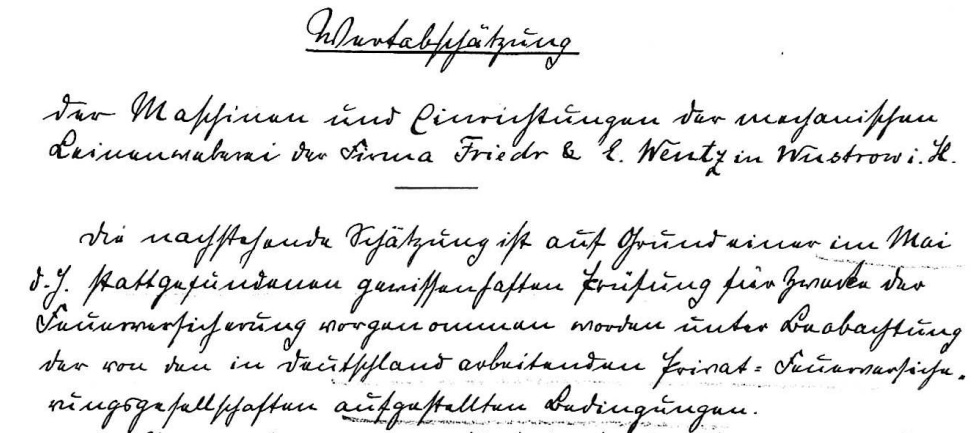 Wertabschätzung
der Maschinen und Einrichtungen der mechanischen
Leinenweberei der Firma Friedr & E. Wentz in Wustrow i. H.
Die nachstehende Schätzung ist auf Grund einer im Mai
d. J. stattgefundenen gewissenhaften Prüfung für Zwecke der
Feuerversicherung vorgenommen worden unter Beobachtung
der von den in Deutschland arbeitenden Privat-Feuerversiche-
rungsgesellschaften aufgestellten Bedingungen.